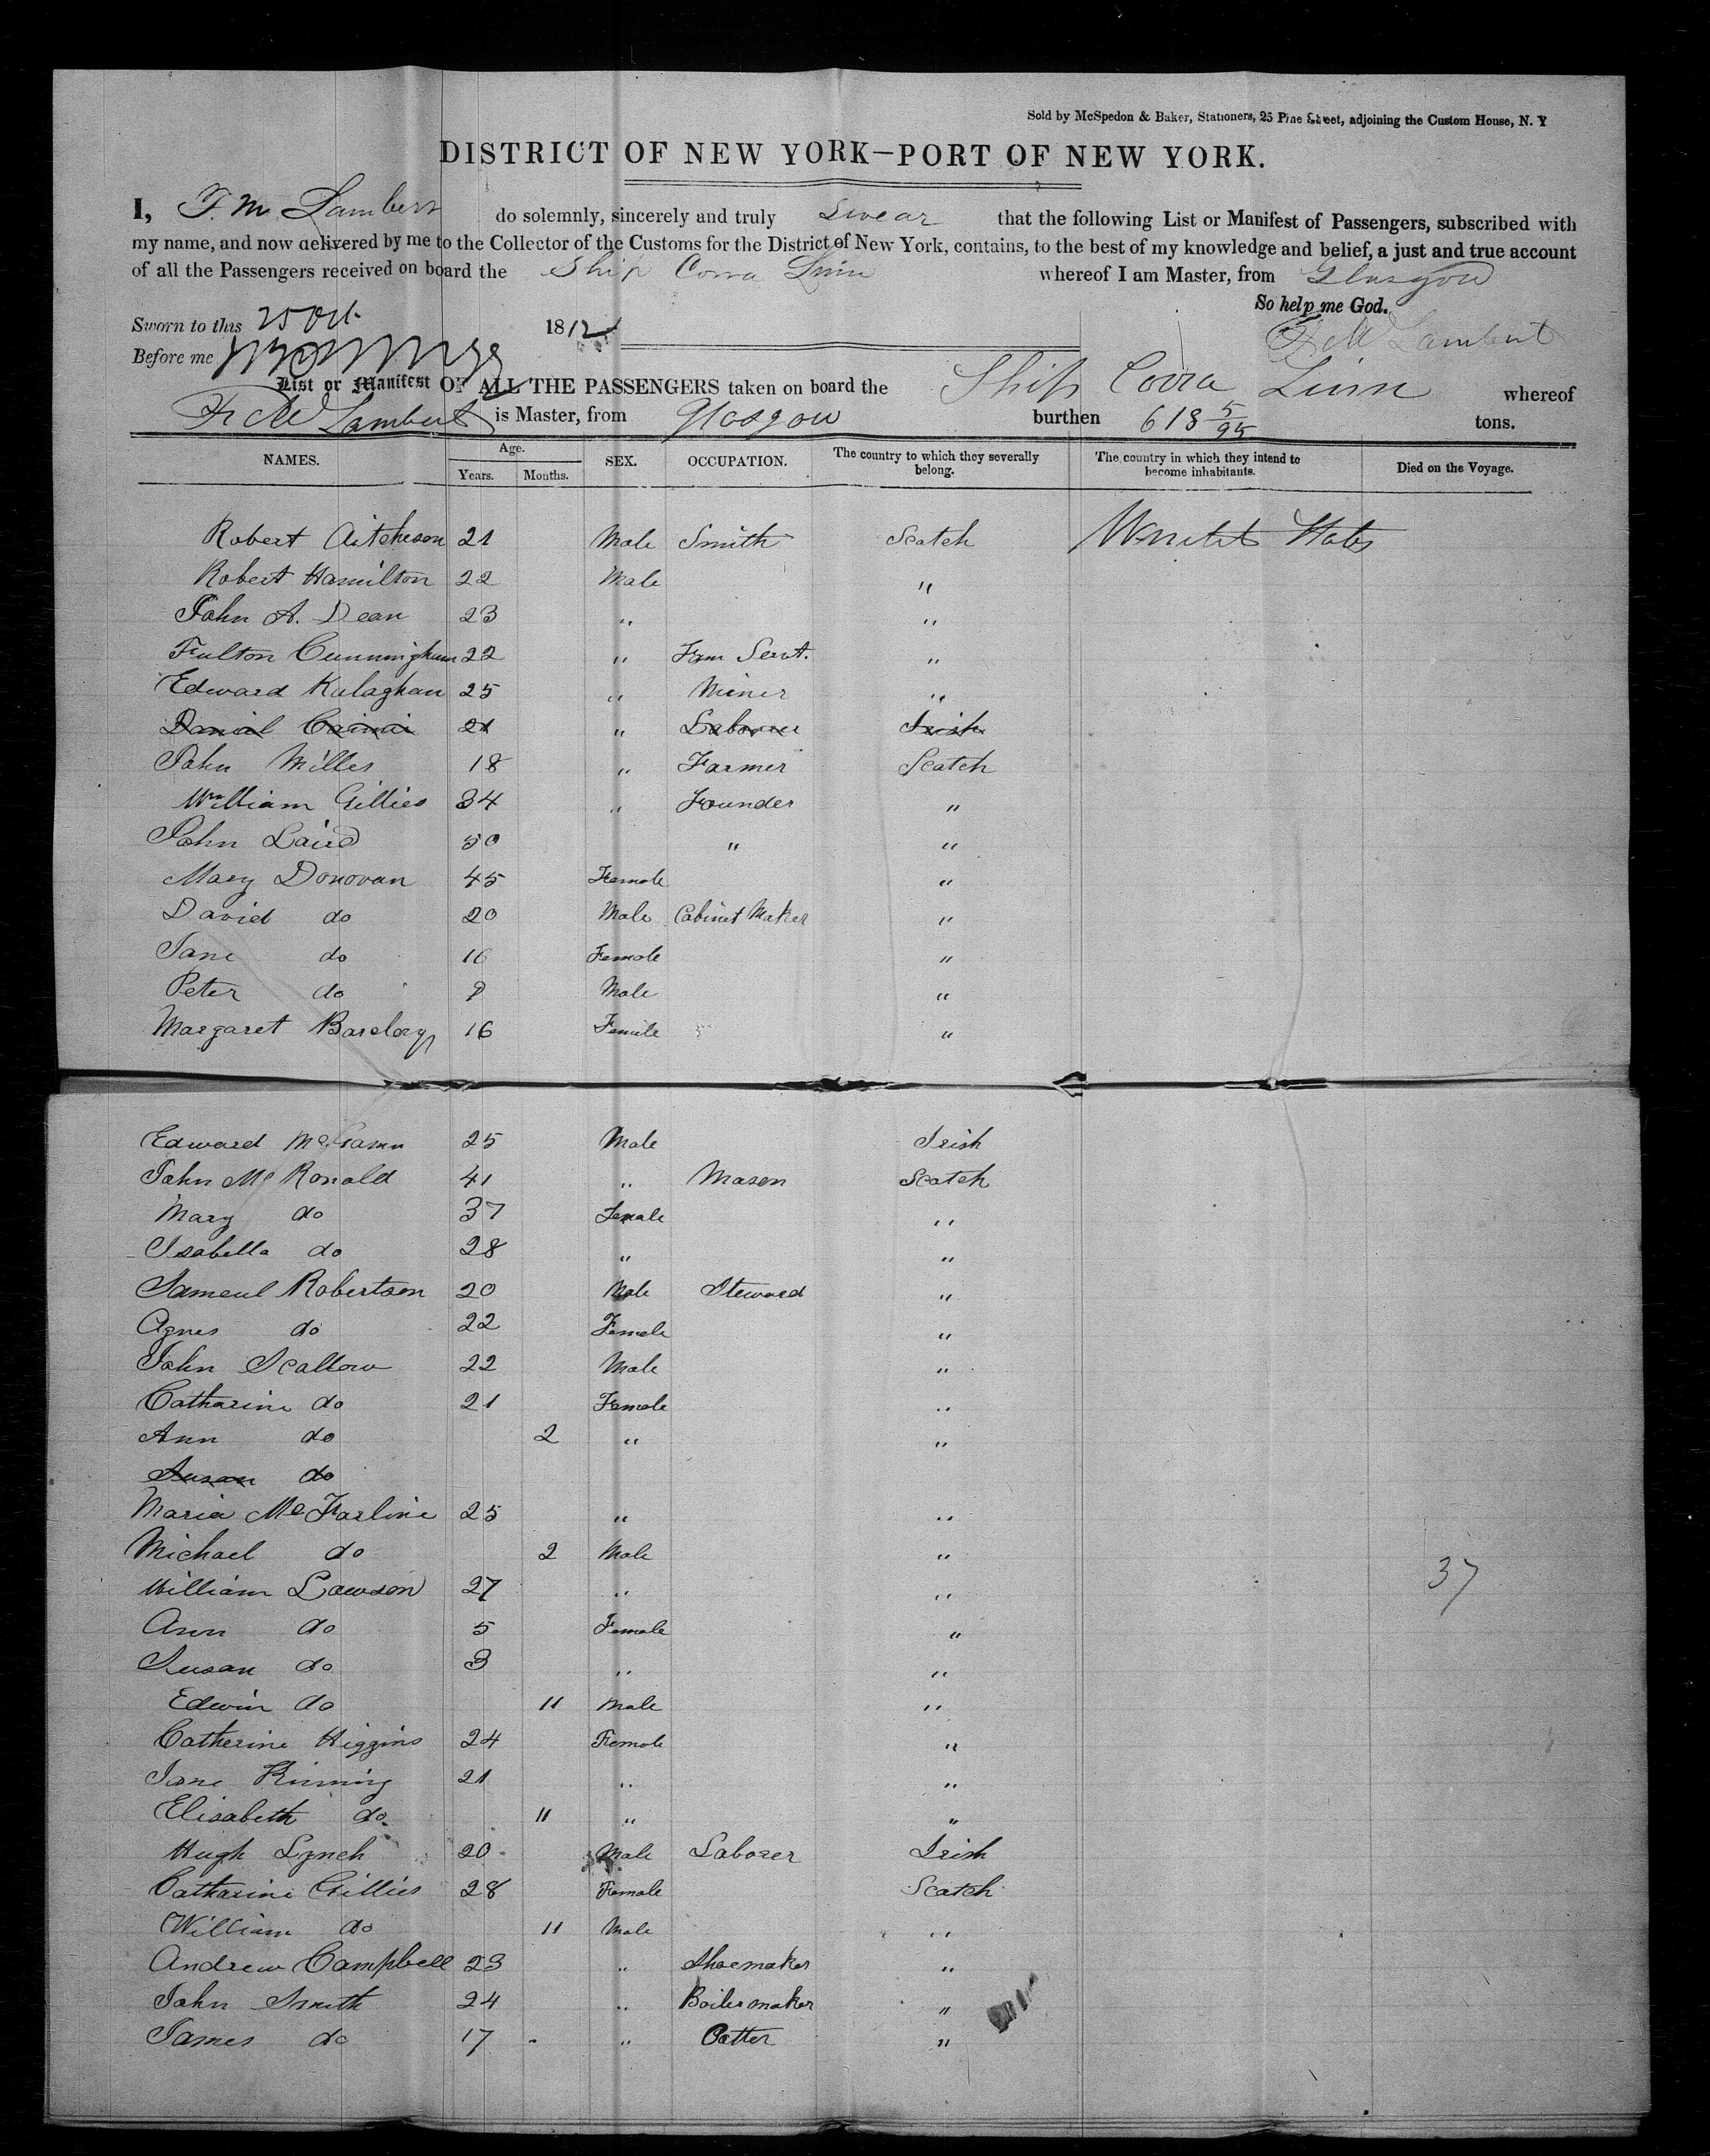 Sold by McSpedon & Baker, Stationers, 25 Pine Street, adjoining the Custom House, N. Y
DISTRICT OF NEW YORK—PORT OF NEW YORK.
I, F. M. Lambert do solemnly, sincerely and truly swear that the following List or Manifest of Passengers, subscribed with
my name, and now delivered by me to the Collector of the Customs for the District of New York, contains, to the best of my knowledge and belief, a just and true account
of all the Passengers received on board the Ship Corra Linn whereof I am Master, from Glasgow
So help me God.
Sworn to this 25 Oct 18
F M Lambert
Before me
List or Manifest OF ALL THE PASSENGERS taken on board the Ship Corra Linn whereof
F M Lambert is Master, from Glasgow burthen 618 5/95 tons.
NAMES. Age. Years. Months. SEX. OCCUPATION. The country to which they severally belong. The country in which they intend to become inhabitants. Died on the Voyage.
Robert Aitcheson 21 Male Smith Scotch United States
Robert Hamilton 22 Male "
John A. Dean 23 " "
Fulton Cunningham 22 " Fam Servt. "
Edward Kalaghan 25 " Miner "
Danial 21 " Laborer Irish
John Miller 18 " Farmer Scotch
William Gillies 34 " Founder "
John Laird 50 " "
Mary Donovan 45 Female "
David do 20 Male Cabinet Maker "
Jane do 16 Female "
Peter do Male "
Margaret Barclay 16 Female "
Edward 25 Male Irish
John Mc Ronald 41 " Mason Scotch
Mary do 37 Female "
Isabella do 28 " "
Sameul Robertson 20 Male Steward "
Agnes do 22 Female "
John Scallow 22 Male "
Catharine do 21 Female "
Ann do 2 " "
Susan do
Maria McFarline 25 " "
Michael do 2 Male "
37
William Lawson 27 " "
Ann do 5 Female "
Susan do 3 " "
Edwin do 11 Male "
Catherine Higgins 24 Female "
Jane Kinning 21 " "
Elisabeth do. 11 " "
Hugh Lynch 20 Male Laborer Irish
Catharine Gillies 28 Female Scotch
William do 11 Male "
Andrew Campbell 23 " Shoemaker "
John Smith 24 " Boilermaker "
James do 17 " "